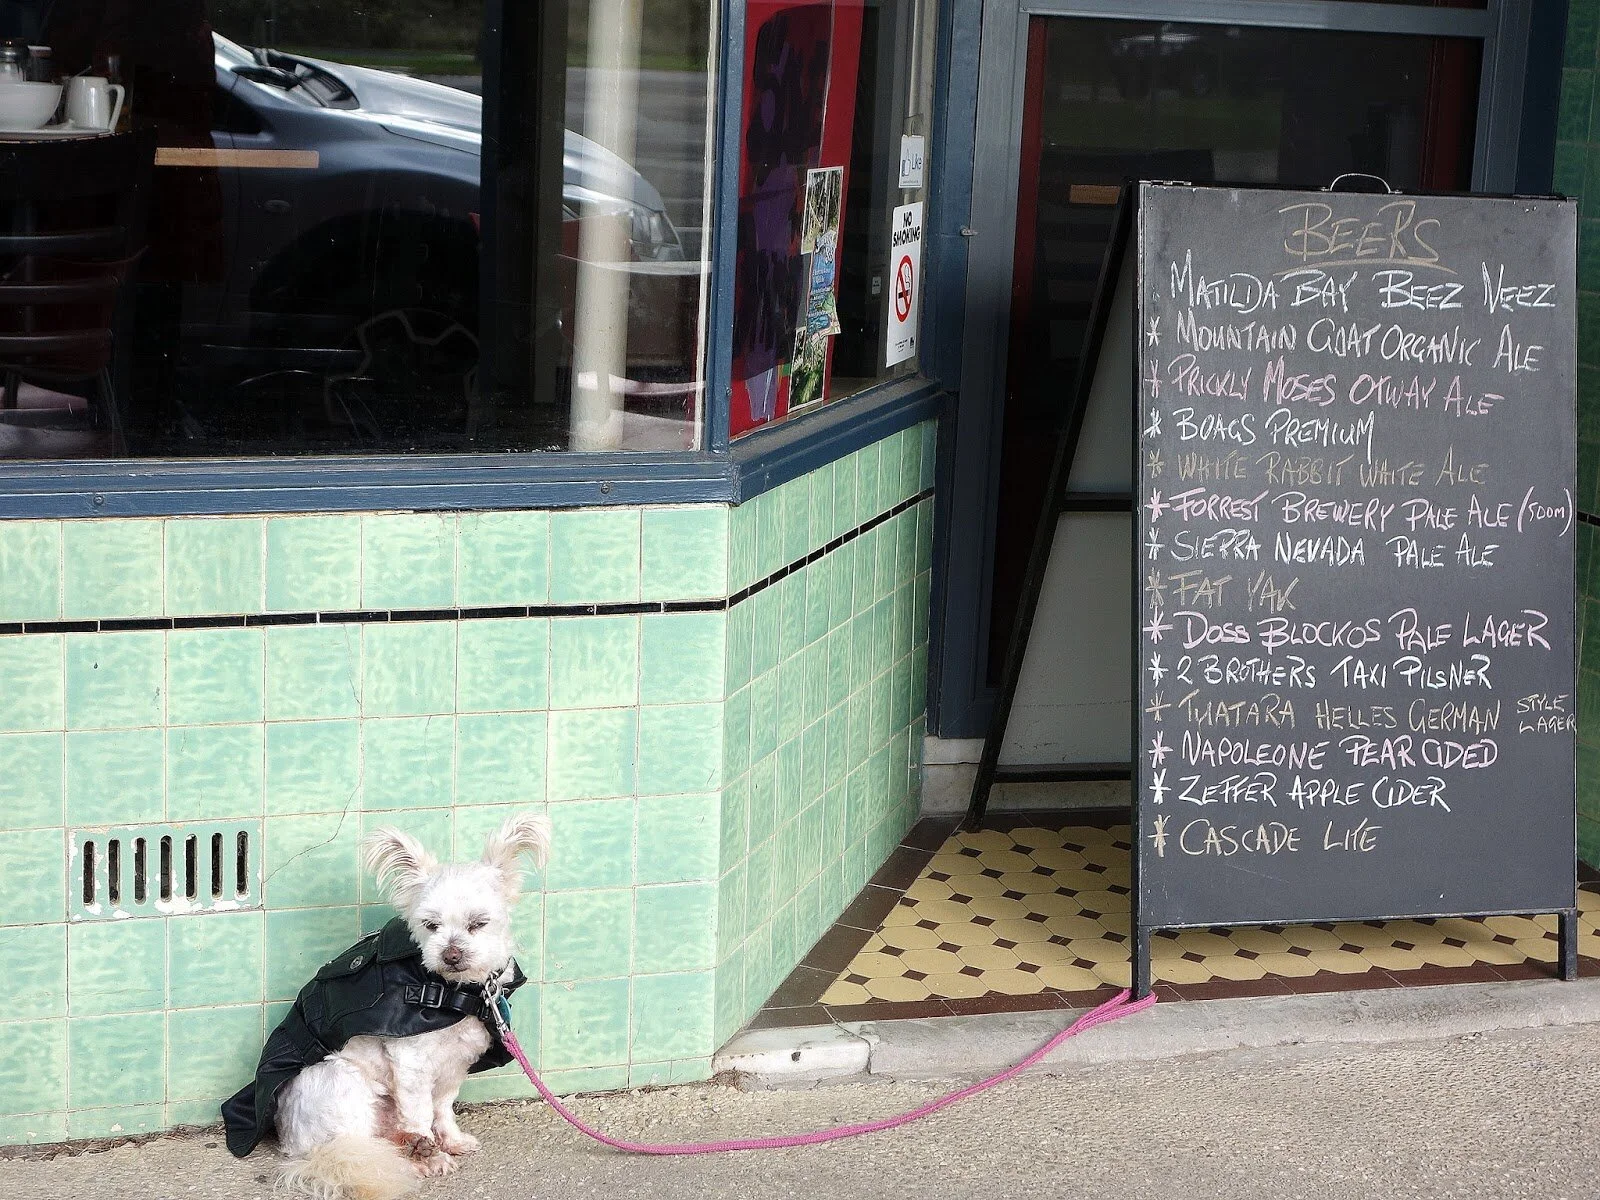 Like
NO
SMOKING
BEERS
MATILDA BAY BEEZ NEEZ
* MOUNTAIN GOAT ORGANIC ALE
* PRICKLY MOSES OTWAY ALE
* BOAGS PREMIUM
* WHITE RABBIT WHITE ALE
* FORREST BREWERY PALE ALE (500M)
* SIERRA NEVADA PALE ALE
* FAT YAK
* DOSS BLOCKOS PALE LAGER
* 2 BROTHERS TAXI PILSNER
* TUATARA HELLES GERMAN STYLE LAGER
* NAPOLEONE PEAR CIDED
* ZEFFER APPLE CIDER
* CASCADE LITE